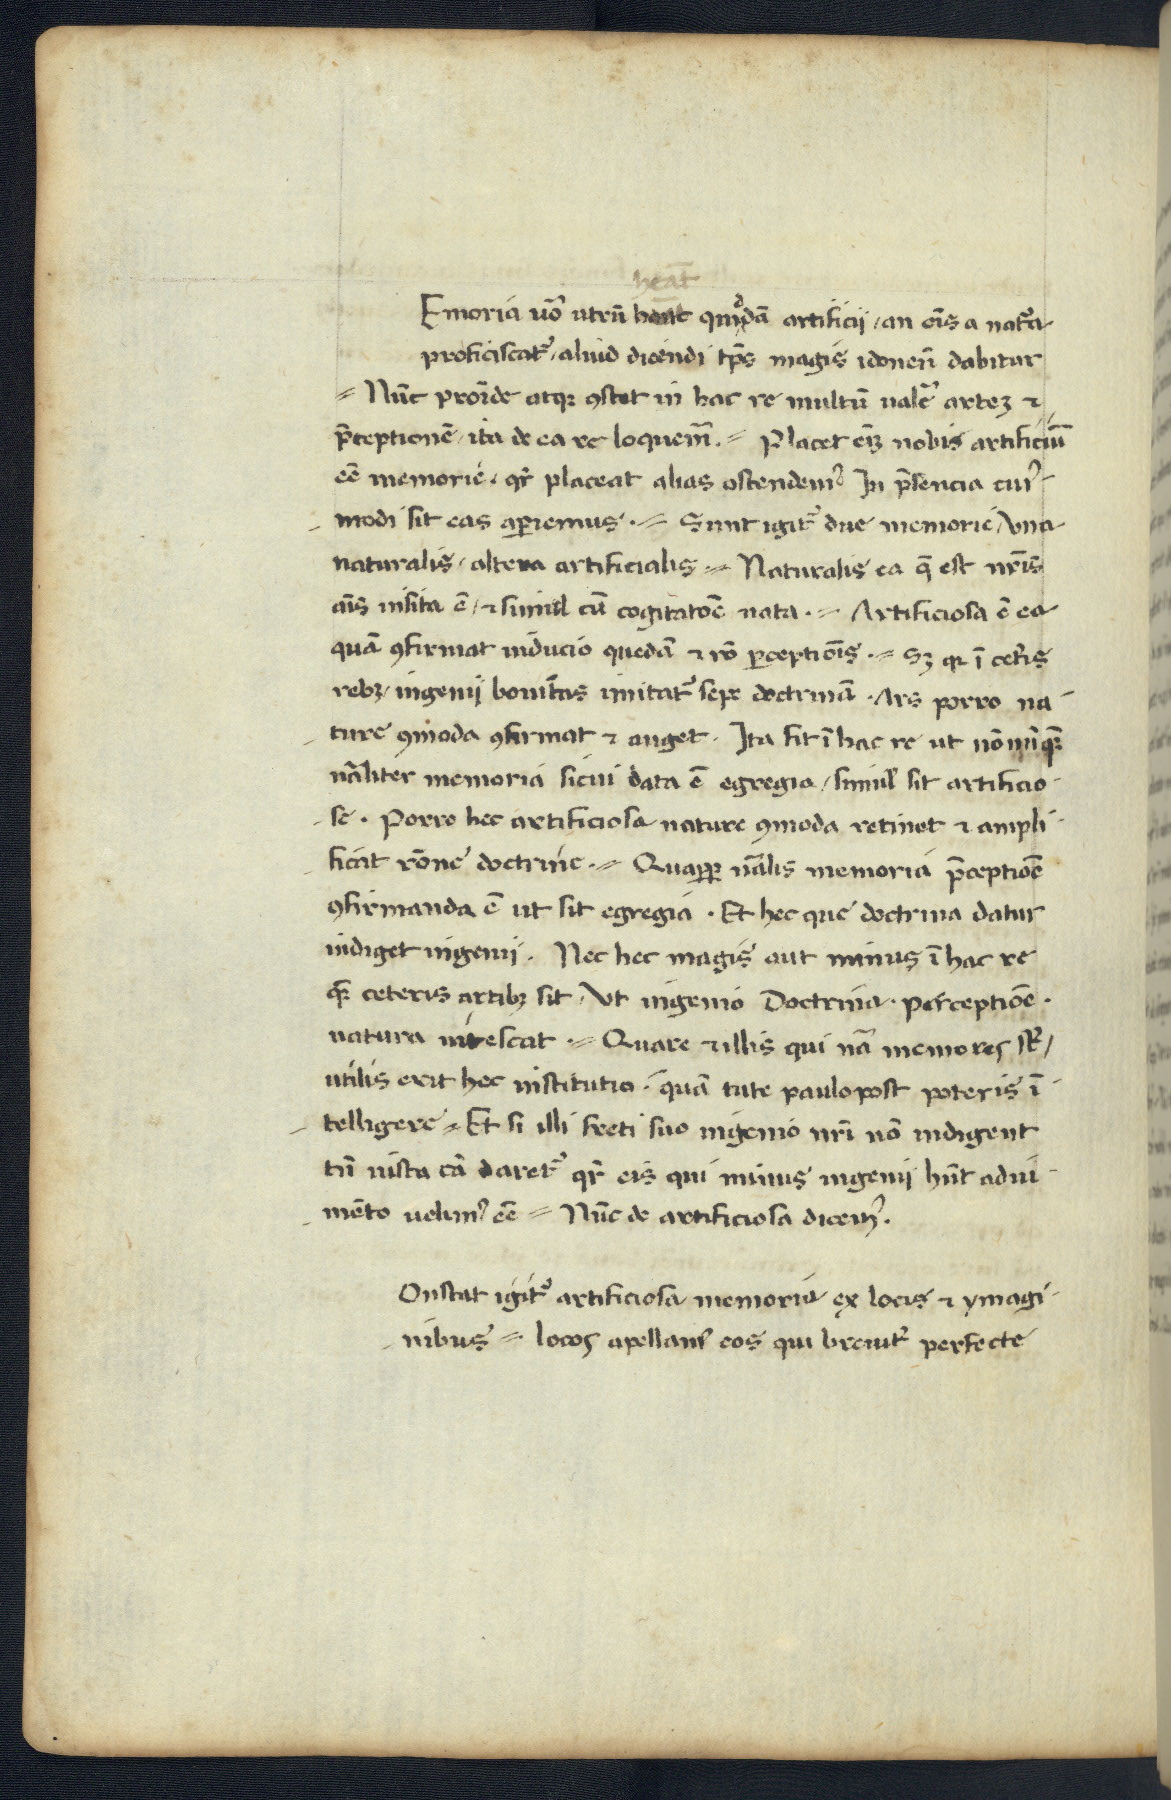 heat̄
Emoria uo᷒ utrū ha̅nt quidda̅ artificij / an oīs a natͣa
proficiscat᷒ / aliud dicendi tp̄s magis idoneū dabitur
Nūc proīde atqꝫ ꝯstat in hac re multū ualꝫ̄ artez ⁊
p̄ceptionē / ita de ea re loquem̄. Placet eīz nobis artificiū
eē memorie · qr̄ placeat alias ostendem᷒ In p̄sencia cui᷒
modi sit eas aꝑiemus. Sunt igit᷒ due memorie / Vna
naturalis / altera artificialis Naturalis ea q̄ est nr̄is
ais insita ē / ⁊ simul cū cogitatōe nata. Artificiosa ē ea
quā ꝯfirmat inducio quedā ⁊ rō p̄ceptiōis. Sꝫ qr ī ceteris
rebꝫ / ingenij bonitas imitat᷒ sepe doctrinā. Ars porro na
ture ꝯmoda ꝯfirmat ⁊ auget. Ita fit ī hac re ut nōnūqꝫ
nāliter memoria sicui data ē egregia / simil sit artificio
se. Porro hec artificiosa nature ꝯmoda retinet ⁊ ampli
ficat rōne doctrine. Quaꝓꝑ nālis memoria p̄ceptiōe
ꝯfirmanda ē ut sit egregia. Et hec que doctrina datur
indiget ingenij. Nec hec magis aut minus ī hac re
qꝫ ceteris artibꝫ sit / Vt ingenio Doctrina. perceptiōe.
natura nitescat. Quare ⁊ illis qui nā memores st̄ /
utilis erit hec institutio. quā tute paulo post poteris ī
telligere Et si illi freti suo ingenio nr̄i nō indigent
tn̄ iusta cā daret᷒ qr̄ eis qui minus ingenij hn̄t adiu
mēto uelim᷒ eē Nūc de artificiosa dicem᷒.
Onstat igit᷒ artificiosa memoria ex locis ⁊ ymagi
nibus locos apellam᷒ eos qui breuit᷒ perfecte